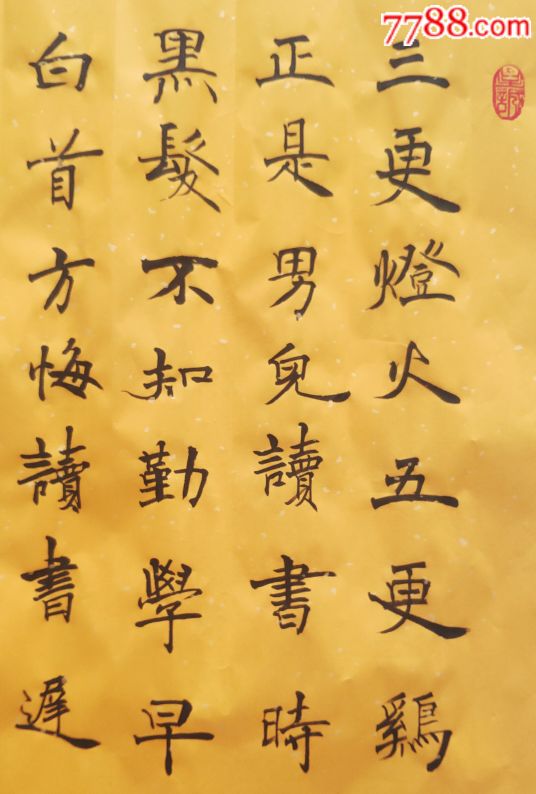 7788.com
三更燈火五更鷄
正是男兒讀書時
黑髮不知勤學早
白首方悔讀書遲